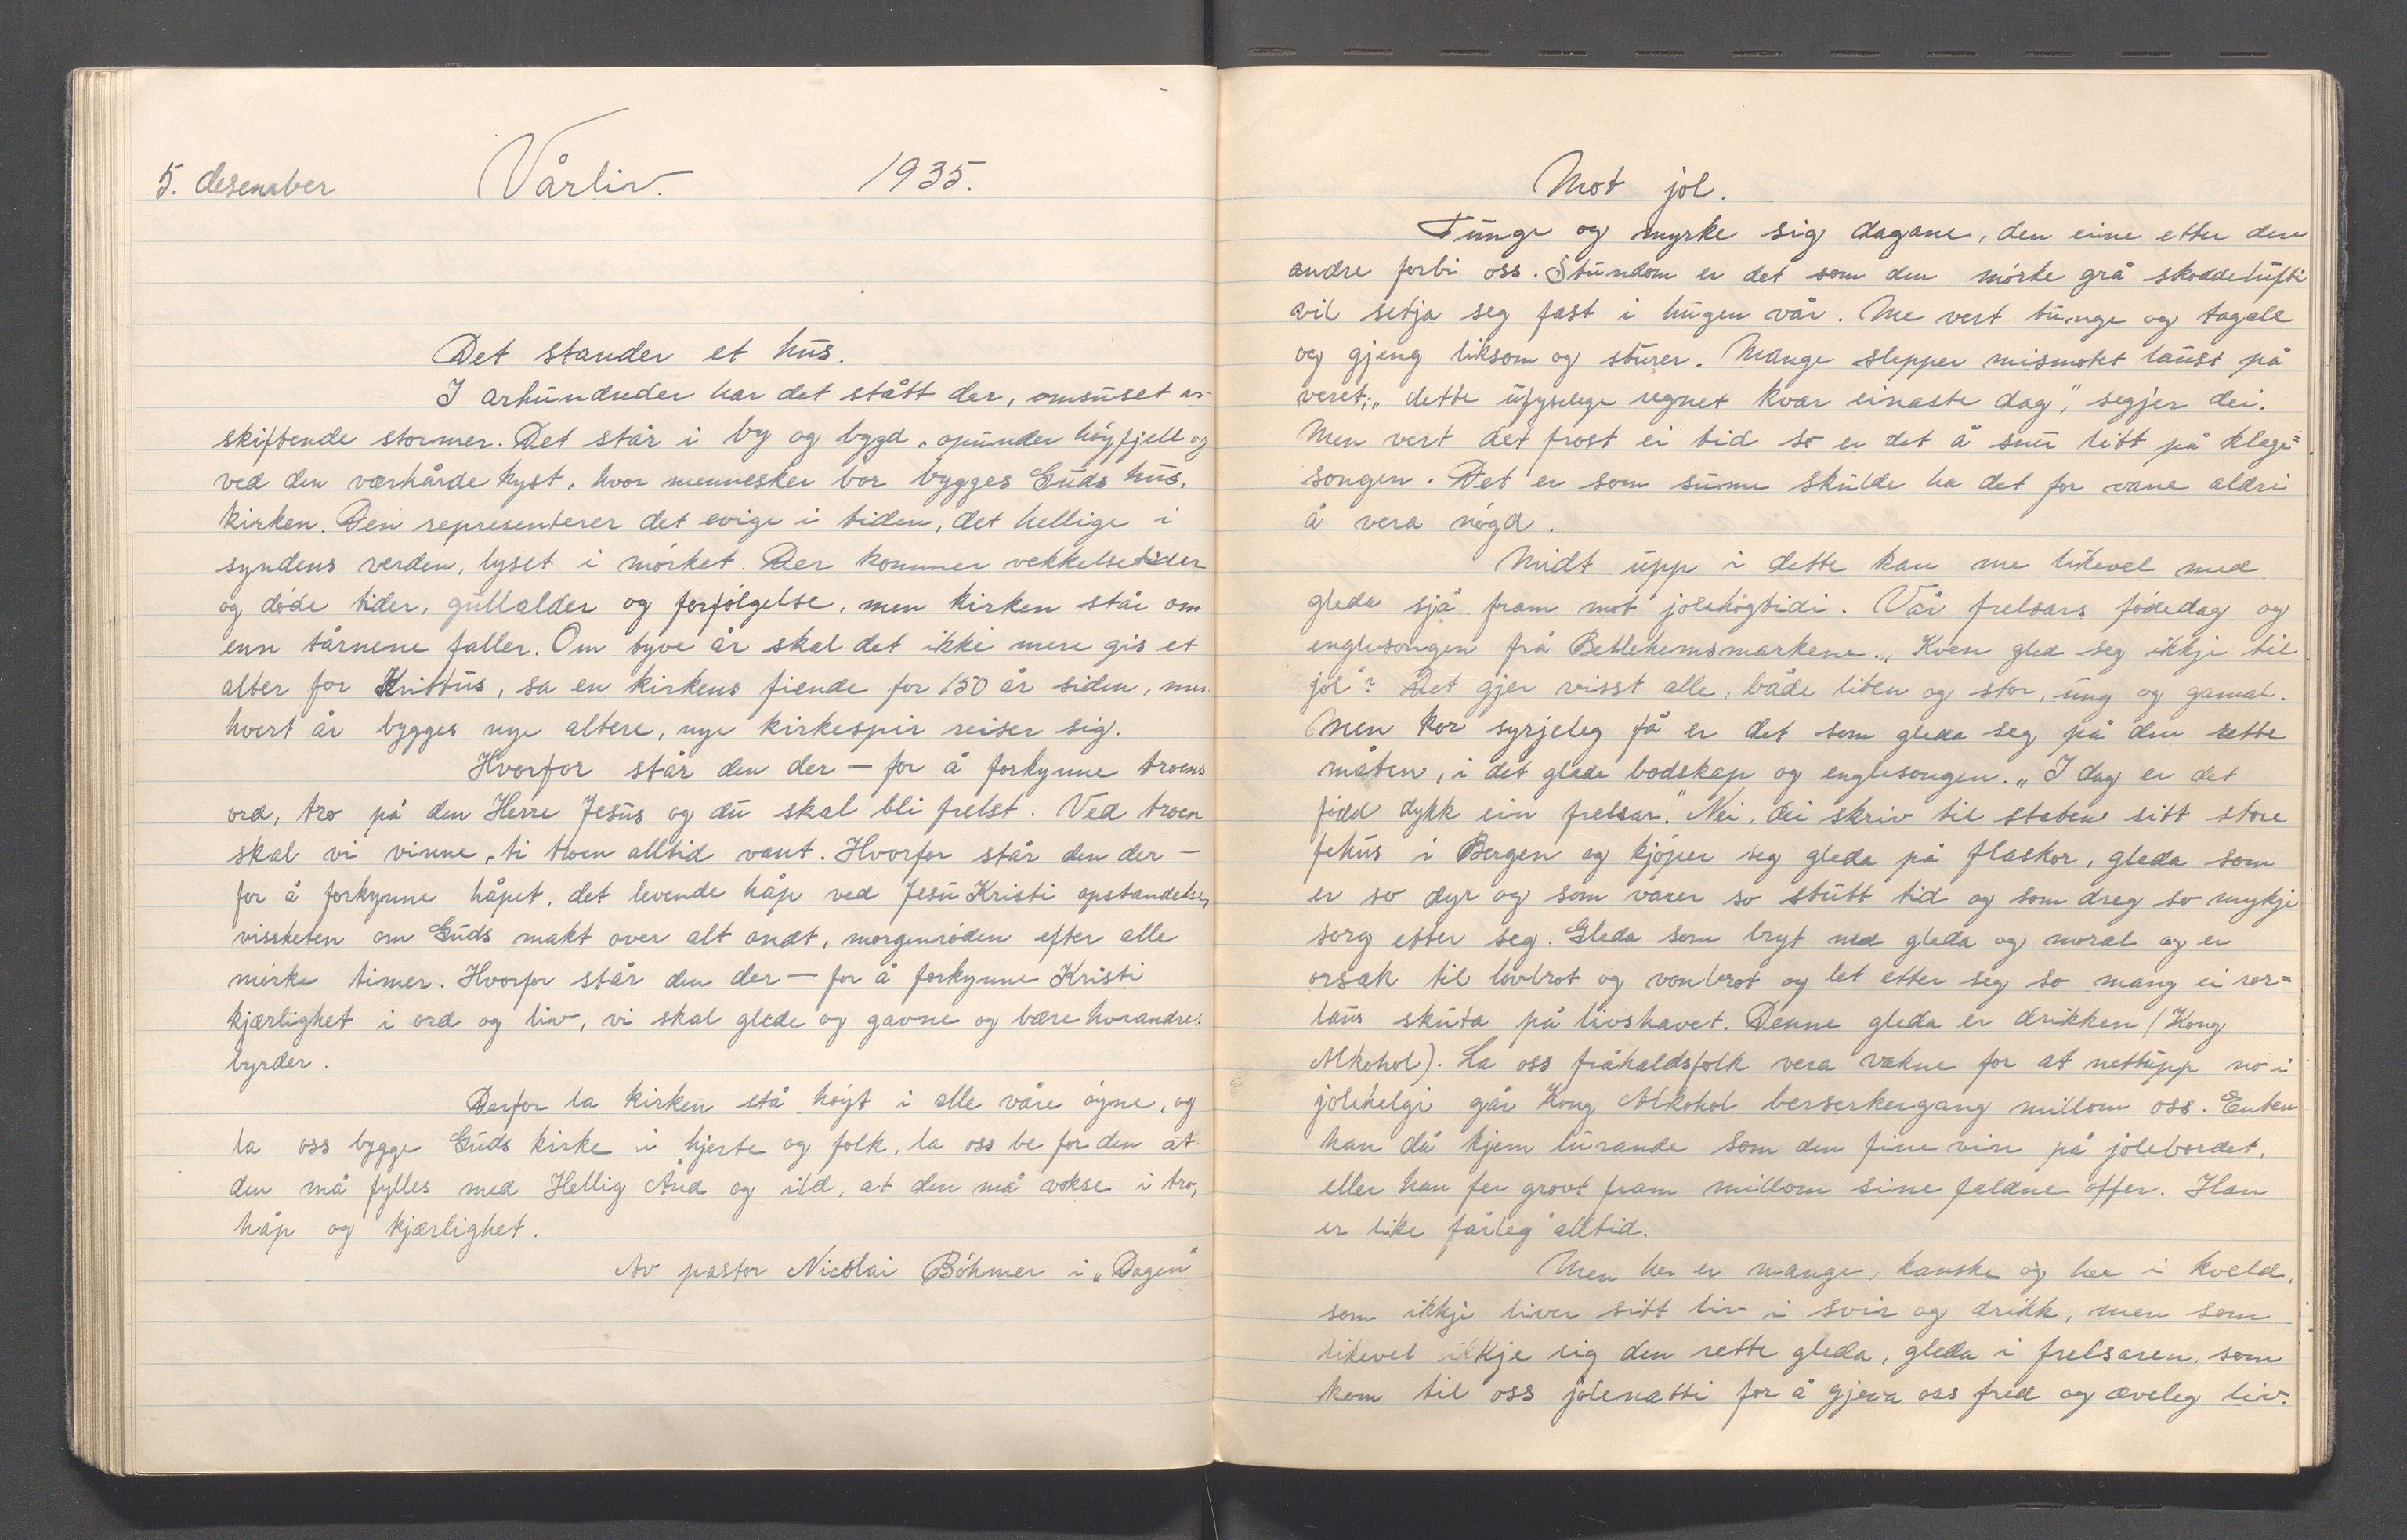 5. desember Vårliv. 1935.
Det stander et hus.
I århundreder har det stått der, omsuset av
skiftende stormer. Det står i by og bygd, opunder høyfjell og
ved den værhårde kyst, hvor mennesker bor bygges Guds hus,
kirken. Den representerer det evige i tiden, det hellige i
syndens verden, lyset i mørket. Der kommer vekkelsetider
og døde tider, gullalder og forfølgelse, men kirken står om
enn tårnene faller. Om tyve år skal det ikke mere gis et
alter for Kristus, sa en kirkens fiende for 150 år siden, men
hvert år bygges nye altere, nye kirkespir reiser sig.
Hvorfor står den der – for å forkynne troens
ord, tro på den Herre Jesus og du skal bli frelst. Ved troen
skal vi vinne, ti troen alltid vant. Hvorfor står den der –
for å forkynne håpet, det levende håp ved Jesu Kristi opstandelse,
vissheten om Guds makt over alt ondt, morgenrøden efter alle
mørke timer. Hvorfor står den der – for å forkynne Kristi
kjærlighet i ord og liv, vi skal glede og gavne og bære hverandres
byrder.
Derfor la kirken stå høyt i alle våre øyne, og
la oss bygge Guds kirke i hjerte og folk, la oss be for den at
den må fylles med Hellig Ånd og ild, at den må vokse i tro,
håp og kjærlighet.
Av pastor Nicolai Böhmer i „Dagen"
Mot jol.
Tunge og myrke sig dagane, den eine etter den
andre forbi oss. Stundom er det som den mørke grå skoddelufti
vil setja seg fast i hugen vår. Me vert tunge og tagale
og gjeng liksom og sturer. Mange slepper mismotet laust på
veret; „dette ufyselege regnet kvar einaste dag", segjer dei.
Men vert det frost ei tid so er det å snu litt på klage=
songen. Det er som sume skulde ha det for vane aldri
å vera nøgd.
Midt upp i dette kan me likevel med
gleda sjå fram mot jolehøgtidi. Vår frelsars fødedag og
englesongen frå Betlehemsmarkene. „Kven gled seg ikkje til
jol"? Det gjer visst alle, både liten og stor, ung og gamal.
Men kor syrjeleg få er det som gleda seg på den rette
måten, i det glade bodskap og englesongen. „I dag er det
fødd dykk ein frelsar." Nei, dei skriv til staten sitt store
fehus i Bergen og kjøper seg gleda på flaskor, gleda som
er so dyr og som varer so stutt tid og som dreg so mykje
sorg etter seg. Gleda som bryt ned gleda og moral og er
orsak til lovbrot og vonbrot og let etter seg so mang ei ror=
laus skuta på livshavet. Denne gleda er drikken (Kong
Alkohol). La oss fråhaldsfolk vera vakne for at nettupp no i
jolehelgi går Kong Alkohol berserkergang millom oss. Enten
han då kjem lurande som den fine vin på jolebordet,
eller han fer grovt fram millom sine faldne offer. Han
er like fårleg alltid.
Men her er mange, kanske og her i kveld,
som ikkje liver sitt liv i svir og drikk, men som
likevel ikkje eig den rette gleda, gleda i frelsaren, som
kom til oss jolenatti for å gjeva oss fred og æveleg liv.